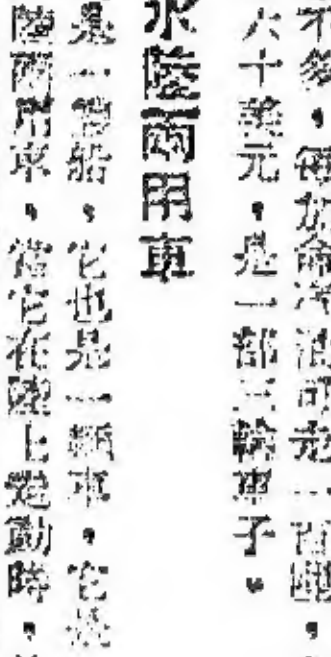 不多，每加侖汽油可走一百哩，
六十美元，是一部三輪車子。
水陸兩用車
是一艘船，它也是一輛車，它
陸兩用車，當它在陸上發動時，